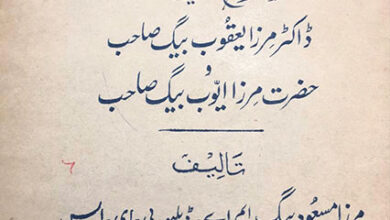 ڈاکٹر مرزا یعقوب بیگ صاحب
و
حضرت مرزا ایوب بیگ صاحب
تالیف
مرزا مسعود بیگ ایم اے